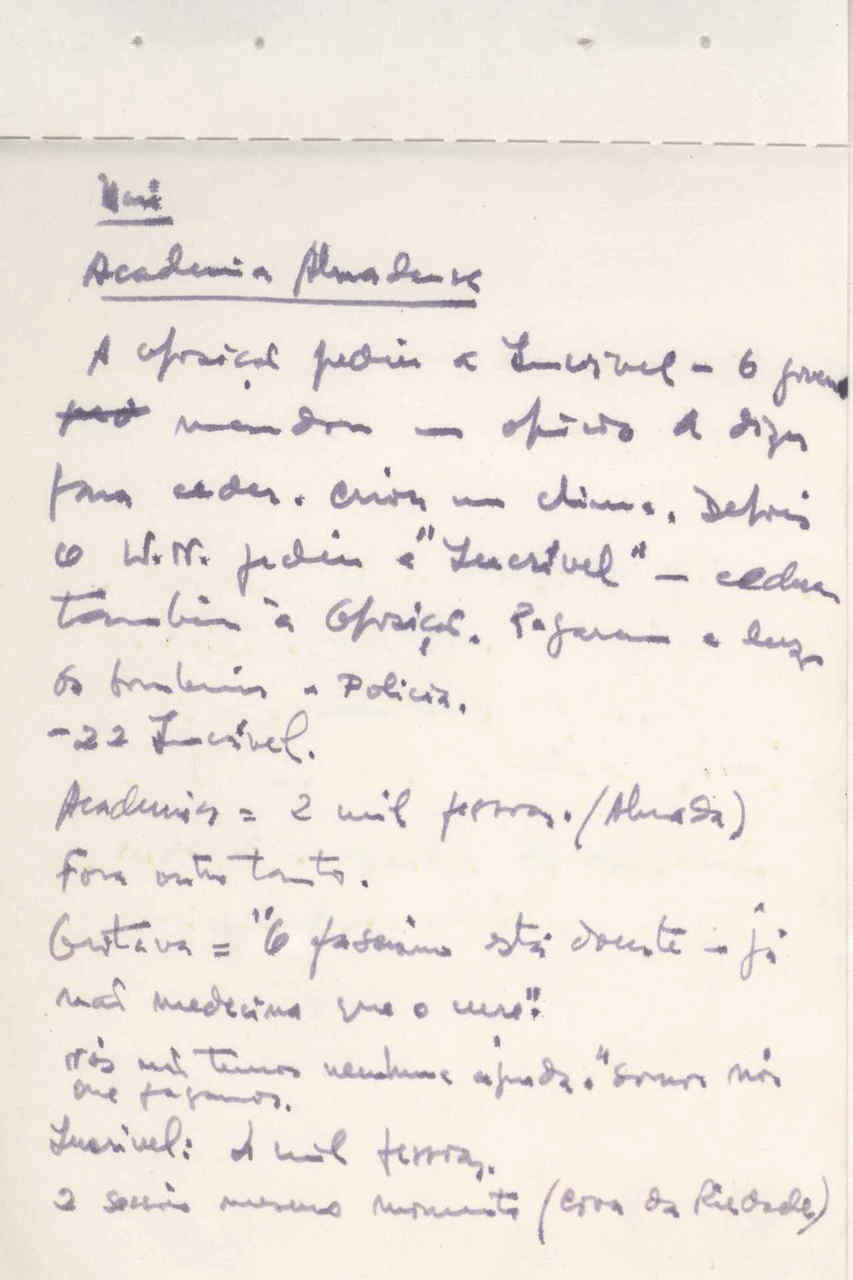 Academia Almadense
A oposição pediu a Incrível – O governo
mandou um ofício a dizer
para ceder. Criou um clima. Depois
o W.N. pediu a "Incrível" – cederam
também à Oposição. Pagaram a luz
os bombeiros a Polícia.
-22 Incrível.
Academia = 2 mil pessoas. (Almada)
Fora outro tanto.
Gritava = "O fascismo está doente – já
não há medecina que o cure".
Nós não temos nenhuma ajuda. "Somos nós
que pagamos.
Incrível: 1 mil pessoas.
2 sessões mesmo momento (Cova da Piedade)